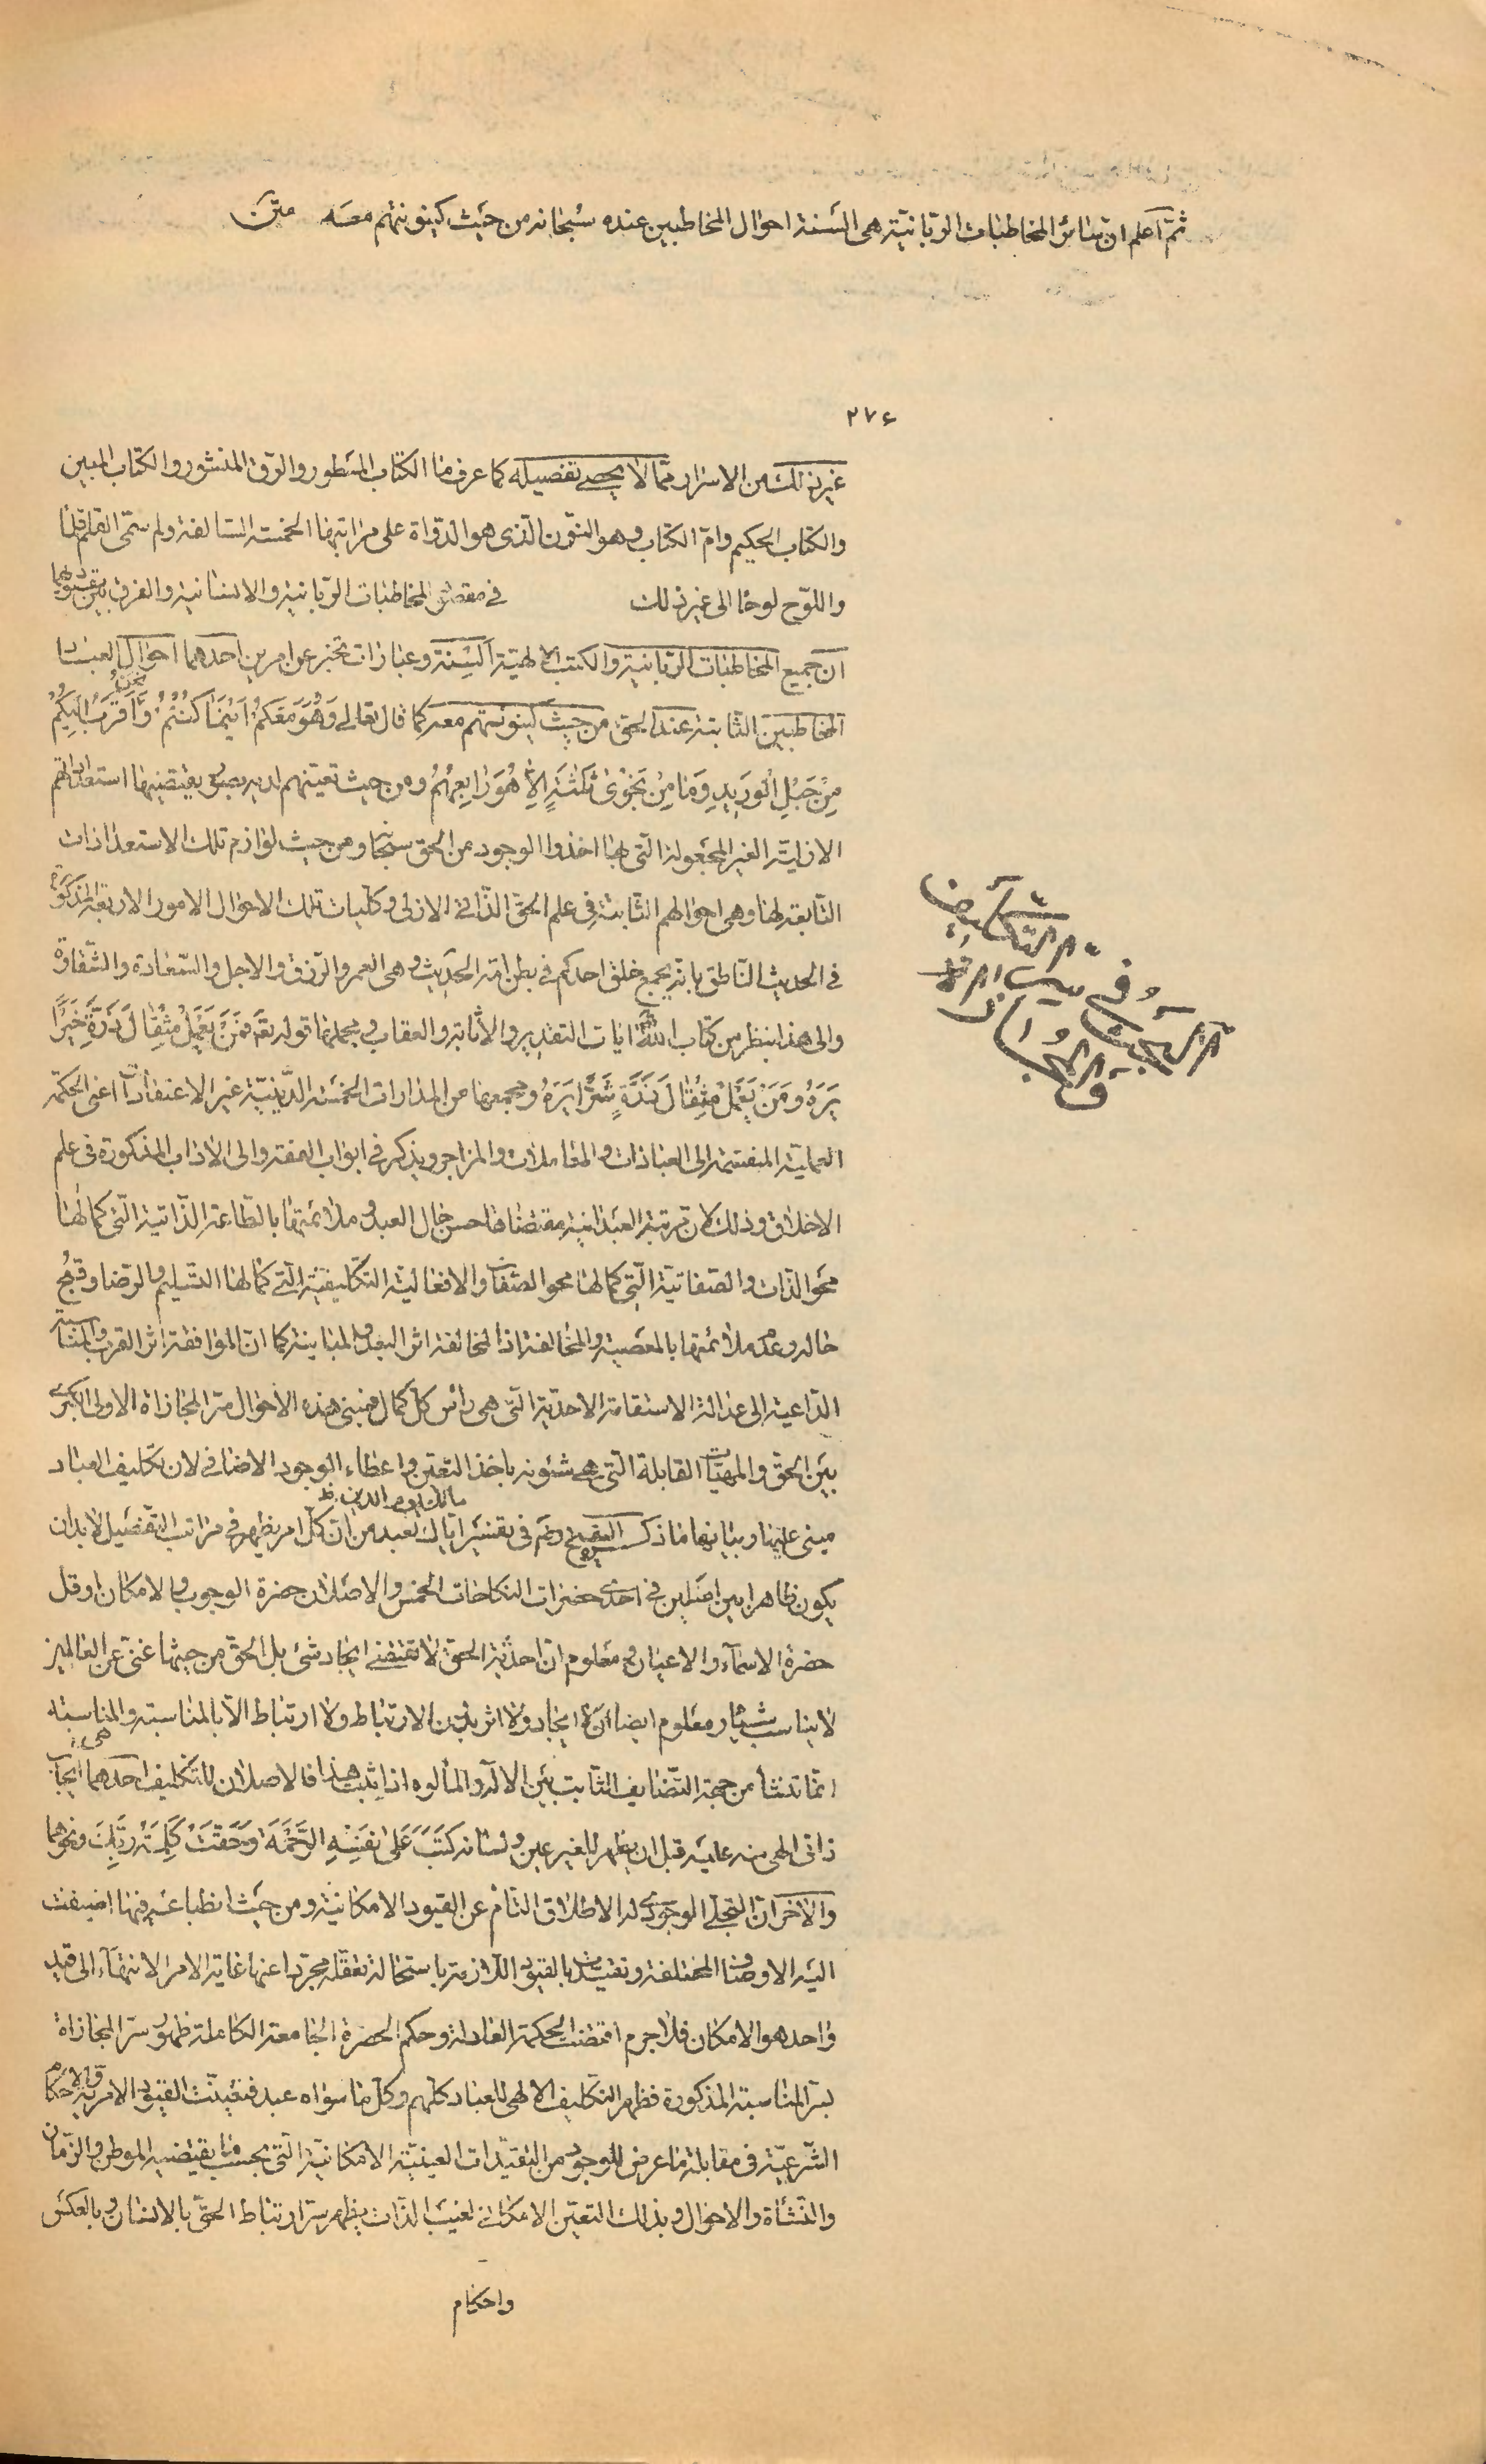 ثمّ اعلم ان سائر المخاطبات الربانية هى السنة احوال المخاطبين عنده سبحانه من حيث كينونتهم معه متن
٢٧٤
غير ذلك من الاسرار ممّا لا يحصى تفصيله كما عرفنا الكتاب المسطور والرق المنشور والكتاب المبين
والكتاب الحكيم وامّ الكتاب وهو النون الذى هو الدواة على مراتبها الخمسة السالفة ولم سمّى القلم قلما
واللوح لوحا الى غير ذلك فى مقصد المخاطبات الربانية والانسانية والفرق بين
ان جميع المخاطبات الربانية والكتب الالهية السنة وعبارات تخبر عن امرين احدهما احوال العباد
المخاطبين الثابتة عند الحق من حيث كينونتهم معه كما قال تعالى وَهُوَ مَعَكُمْ اَيْنَمَا كُنْتُمْ وَنَحْنُ اَقْرَبُ اِلَيْكُمْ
مِنْ حَبْلِ الْوَرِيدِ وَمَا مِنْ نَجْوٰى ثَلٰثَةٍ اِلاّٰ هُوَ رَابِعُهُمْ ومن حيث تعينهم لديه بصور يقتضيها استعداداتهم
الازلية الغير المجعولة التى بها اخذوا الوجود من الحق سبحانه ومن حيث لوازم تلك الاستعدادات
التابعة لها وهى احوالهم الثابتة فى علم الحق الذاتى الازلى وكليات تلك الاحوال الامور الاربعة المذكورة
فى الحديث الناطق بانه يجمع خلق احدكم فى بطن امه الحديث وهى العمر والرزق والاجل والسعادة والشقاوة
والى هذا ينظر من كتاب الله ايات التقدير والاثابة والعقاب ومجملها قوله تعه فَمَنْ يَعْمَلْ مِثْقَالَ ذَرَّةٍ خَيْرًا
يَرَهُ وَمَنْ يَعْمَلْ مِثْقَالَ ذَرَّةٍ شَرًّا يَرَهُ ومجمعها من المدارات الخمسة الدينية غير الاعتقادات اعنى الحكمة
العملية المنقسمة الى العبادات والمعاملات والمزاجر ويذكر فى ابواب الفقه والى الاداب المذكورة فى علم
الاخلاق وذلك لان مرتبة العبدانية مقتضاها حسن حال العبد وملائمتها بالطاعة الذاتية التى كمالها
محو الذات والصفاتية التى كمالها محو الصفات والافعالية التكليفية التى كمالها التسليم والرضا وقبح
حاله وعدم ملائمتها بالمعصية والمخالفة اذ المخالفة اثر البعد والمباينة كما ان الموافقة اثر القرب والمناسبة
الداعية الى عدالة الاستقامة الاحدية التى هى راس كل كمال فمبنى هذه الاحوال سر المجازاة الاولى الكبرى
بين الحق والمهيات القابلة التى هى شئونه باخذ التعين واعطاء الوجود الاضافى لان تكليف العباد
مبنى عليها وبيانها ما ذكر الشيخ رضى فى تفسير مالك يوم الدين اياك نعبد من ان كل امر يظهر فى مراتب التفصيل لابد ان
يكون ظاهرا بين اصلين فى احدى حضرات النكاحات الخمس والاصلان حضرة الوجوب والامكان او قل
حضرة الاسماء والاعيان ومعلوم ان احدية الحق لا تقتضى ايجاد شئ بل الحق من حيثها غنى عن العالمين
لا يناسب شيئا ومعلوم ايضا ان لا ايجاد ولا اثر بدون الارتباط ولا ارتباط الا بالمناسبة والمناسبة
انما تنشأ من جهة التضايف الثابت بين الاله والمألوه اذا ثبت هذا فالاصلان للتكليف احدهما ايجاب
ذاتى الهى منه عليه قبل ان يظهر للغير عين ولسانه كَتَبَ عَلٰى نَفْسِهِ الرَّحْمَةَ وَحَقَّتْ كَلِمَةُ رَبِّكَ ونحوهما
والاخر ان التجلى الوجودى له الاطلاق التام عن القيود الامكانية ومن حيث انطباعه فيها اضيفت
اليه الاوصاف المختلفة وتقيدت بالقيود اللازمة باستحالة تعقله مجردا عنها غاية الامر الانتهاء الى قيد
واحد هو الامكان فلا جرم اقتضت الحكمة العادلة وحكم الحضرة الجامعة الكاملة ظهور سر المجازاة
بسر المناسبة المذكورة فظهر التكليف الالهى للعباد كلهم وكل ما سواه عبد فتعينت القيود الامرية والاحكام
الشرعية فى مقابلة ما عرض للوجود من التقيدات العينية الامكانية التى بحسب ما يقتضيه الموطن والزمان
والنشاة والاحوال وبذلك التعين الامكانى لغيب الذات يظهر سر ارتباط الحق بالانسان وبالعكس
واحكام
البحث فى سر التكليف
والمجازاة